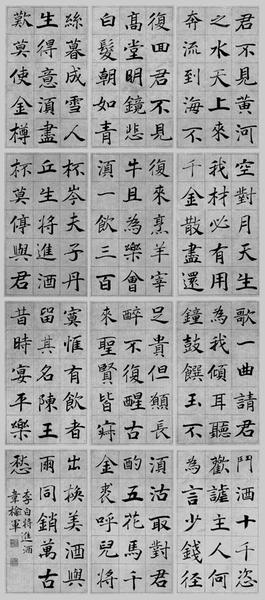 君不見黃河
之水天上來
奔流到海不
復回君不見
高堂明鏡悲
白髮朝如青
絲暮成雪人
生得意須盡
歡莫使金樽
空對月天生
我材必有用
千金散盡還
復來烹羊宰
牛且為樂會
須一飲三百
杯岑夫子丹
丘生將進酒
杯莫停與君
歌一曲請君
為我傾耳聽
鐘鼓饌玉不
足貴但願長
醉不復醒古
來聖賢皆寂
寞惟有飲者
留其名陳王
昔時宴平樂
鬥酒十千恣
歡謔主人何
為言少錢徑
須沽取對君
酌五花馬千
金裘呼兒將
出換美酒與
爾同銷萬古
愁
李白將進酒
韋榆軍